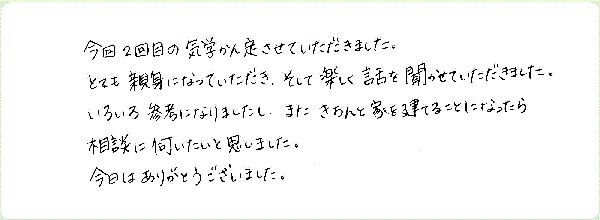 今回2回目の気学かん定させていただきました。
とても親身になっていただき、そして楽しく話を聞かせていただきました。
いろいろ参考になりましたし、また きちんと家を建てることになったら
相談に伺いたいと思いました。
今日はありがとうございました。